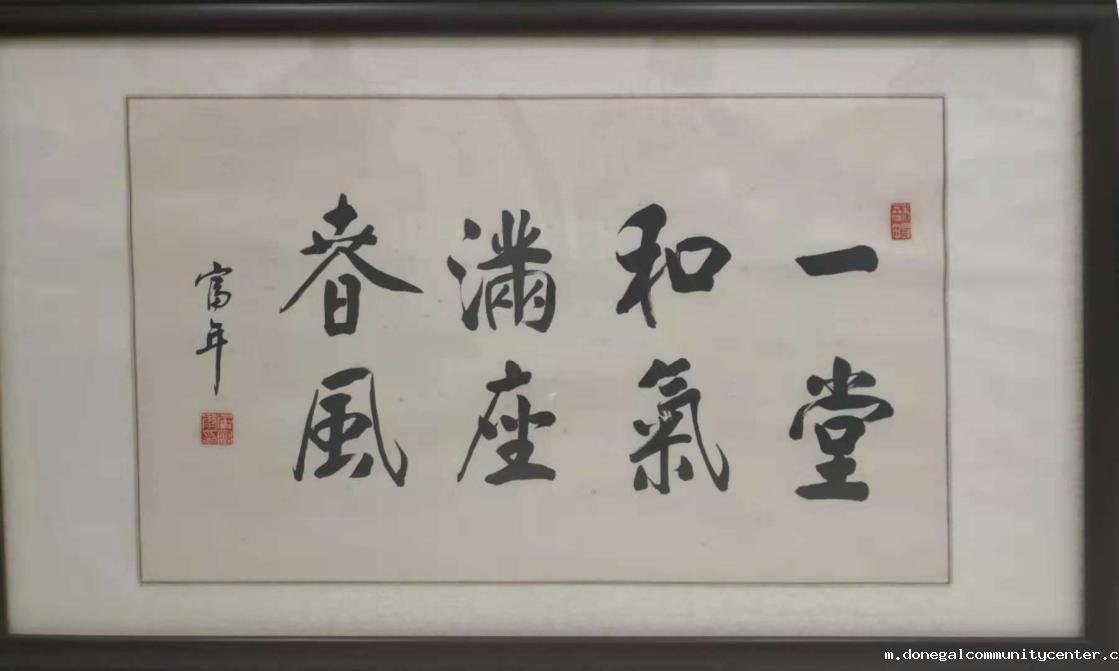 一堂
和氣
滿座
春風
富年
m.donegalcommunitycenter.c